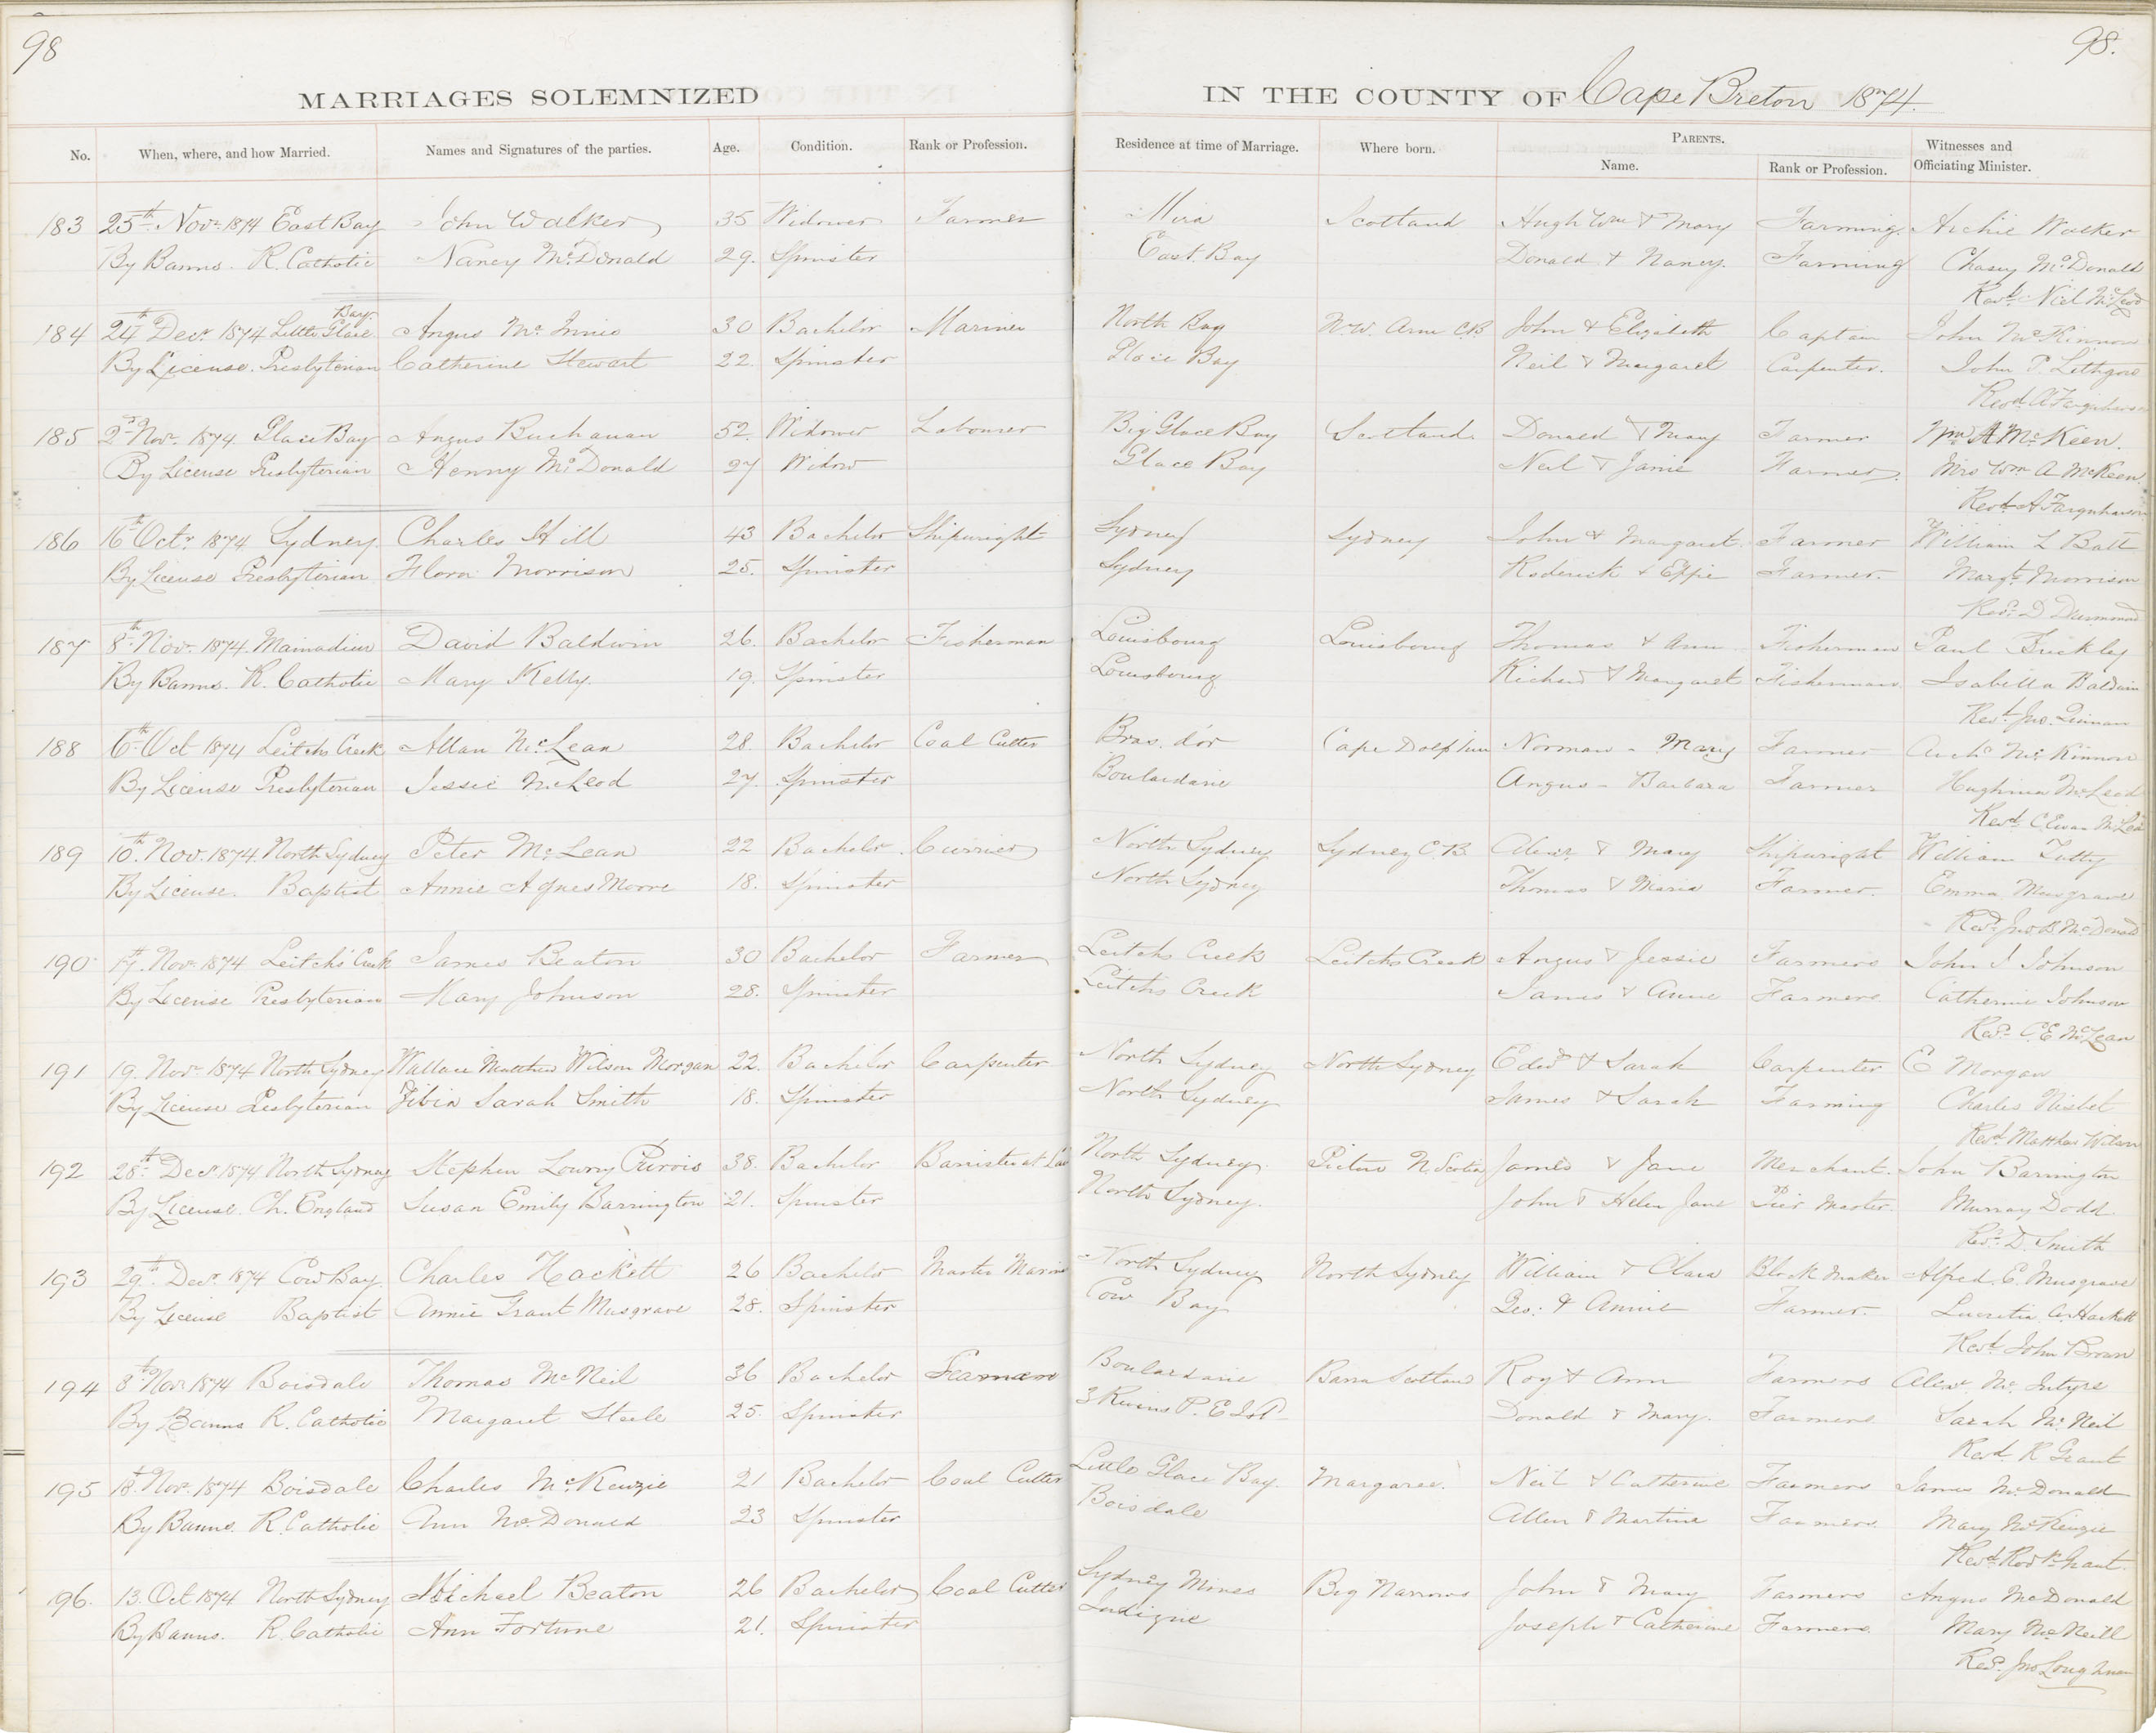 98
98.
MARRIAGES SOLEMNIZED IN THE COUNTY OF Cape Breton 1874.
No. When, where, and how Married. Names and Signatures of the parties. Age. Condition. Rank or Profession. Residence at time of Marriage. Where born. PARENTS. Witnesses and
Name. Rank or Profession. Officiating Minister.
183 25th Novr 1874 East Bay John Walker 35 Widower Farmer Mira Scotland Hugh Wm & Mary Farming Archie Walker
By Banns. R. Catholic Nancy McDonald 29. Spinster East Bay Donald & Nancy. Farming McDonald
Revd Niel McLeod
Bay.
184 24th Decr 1874 Little Glace Angus McInnis 30 Bachelor Mariner North Bay N.W. Arm C.B. John & Elizabeth Captain John McKinnon
By License. Presbyterian Catherine Stewart 22. Spinster Glace Bay Neil & Margaret Carpenter. John P. Lithgow
Revd A Farquharson
185 2d Novr 1874. Glace Bay Angus Buchanan 52. Widower Labourer Big Glace Bay Scotland Donald & Mary Farmer Wm A McKeen.
By License Presbyterian Henny McDonald 27 Widow Glace Bay Neil & Janie Farmer. Mrs Wm A McKeen
Revd A Farquharson
186 16th Octr 1874 Sydney. Charles Hill 43 Bachelor Shipwright Sydney Sydney John & Margaret Farmer William L Batt
By License Presbyterian Flora Morrison 25. Spinster Sydney Roderick & Effie Farmer. Margt Morrison
Revd D Drummond
187 8th Novr 1874. Mainadieu David Baldwin 26. Bachelor Fisherman Louisbourg Louisbourg Thomas & Ann Fisherman Paul
By Banns. R. Catholic Mary Kelly. 19. Spinster Louisbourg Richard & Margaret Fisherman Isabella Baldwin
Revd Jno. Quinan
188 6th Oct 1874 Leitchs Creek Allan McLean 28. Bachelor Coal Cutter Bras. d'or Cape Dolphin Norman - Mary Farmer Archd McKinnon
By License Presbyterian Jessie McLeod 27. Spinster Boulardarie Angus - Barbara Farmer Hughina McLeod
Revd C Ewan McLean
189 10th Nov. 1874 North Sydney Peter McLean 22 Bachelor Currier North Sydney Sydney C.B. Alexr & Mary Shipwright William Tutty
By License. Baptist Annie Agnes Moore 18. Spinster North Sydney Thomas & Maria Farmer. Emma Musgrave
Revd Jno B McDonald
190 17th Novr 1874 Leitchs' Creek James Beaton 30 Bachelor Farmer Leitchs Creek Leitchs Creek Angus & Jessie Farmers John J Johnson
By License Presbyterian Mary Johnson 28. Spinster Leitchs Creek James & Anne Farmers. Catherine Johnson
Revd C.E. McLean
191 19. Novr 1874 North Sydney Wallace Matthew Wilson Morgan 22. Bachelor Carpenter North Sydney North Sydney Edwd & Sarah Carpenter E Morgan
By License Presbyterian Zibia Sarah Smith 18. Spinster North Sydney James & Sarah Farming Charles Nisbet
Revd Matthew Wilson
192 28th Decr 1874 North Sydney Stephen Lowry Purvis 38. Bachelor Barrister at Law North Sydney Pictou N. Scotia James & Jane Merchant. John Barrington
By License. Ch. England Susan Emily Barrington 21. Spinster North Sydney. John & Helen Jane Pier Master. Murray Dodd.
Revd D. Smith
193 29th Decr 1874 Cow Bay Charles Hackett 26 Bachelor Master Marine North Sydney North Sydney William & Clara Block Maker Alfred. E. Musgrave
By License Baptist Annie Grant Musgrave 28. Spinster Cow Bay Geo: & Annie Farmer. Lucretia Hackett
Revd John Brown
194 8th Novr 1874 Boisdale Thomas McNeil 36 Bachelor Seaman Boulardarie Barra Scotland Roy & Ann Farmers Alexr McIntyre
By Banns R. Catholic Margaret Steele 25. Spinster 3 Rivers P. E Isld Donald & Mary. Farmers Sarah McNeil
Revd R Grant
195 18th Nov. 1874 Boisdale Charles McKenzie 21 Bachelor Coal Cutter Little Glace Bay. Margaree. Neil & Catherine Farmers James McDonald
By Banns. R. Catholic Ann McDonald 23 Spinster Boisdale Allen & Martina Farmers. Mary McKenzie
Revd Rodk Grant.
196. 13. Oct 1874 North Sydney Michael Beaton 26 Bachelor Coal Cutter Sydney Mines Big Narrows John & Mary Farmers Angus McDonald
By Banns. R. Catholic Ann Fortune 21. Spinster Indigne Joseph & Catherine Farmers. Mary McNeill
Revd Jno Loughnan